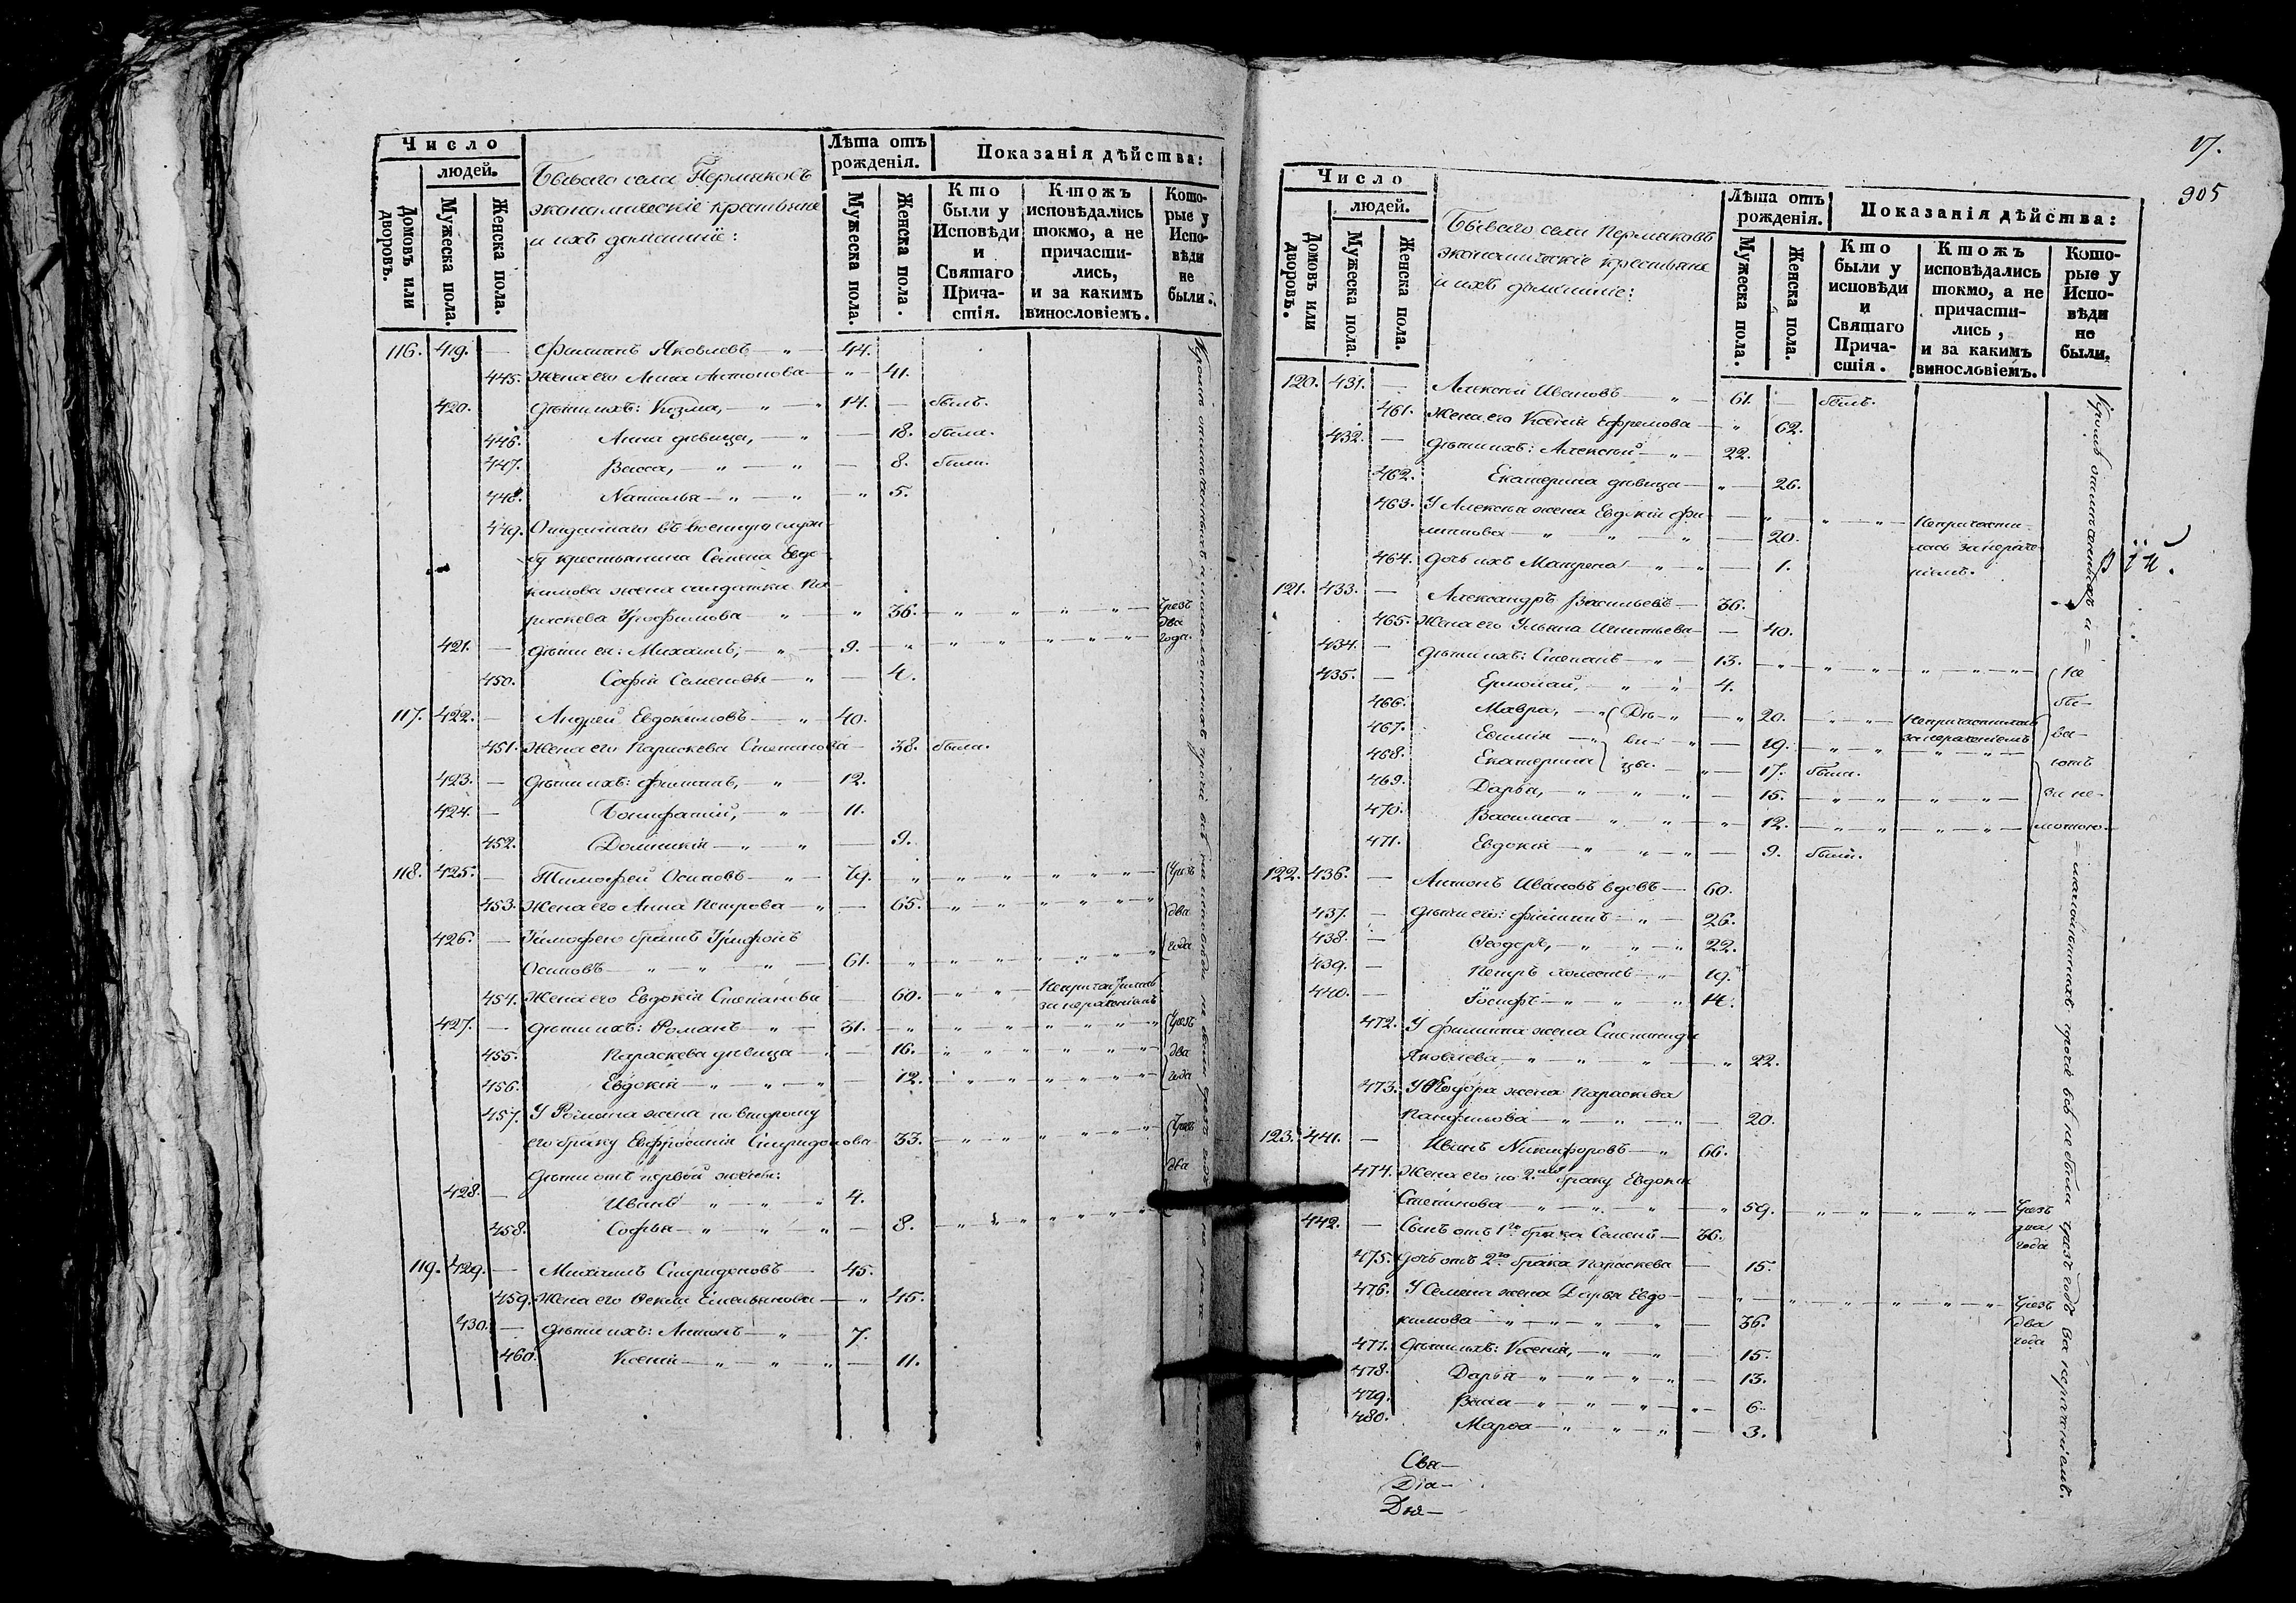 Число
людей.
Домовъ или дворовъ.
Мужеска пола.
Женска пола.
Бываго села Пермяковъ
экономическіе крестьяне
и ихъ домашніе:
Лѣта отъ рожденія.
Мужеска пола.
Женска пола.
Показанія дѣйства:
Кто были у Исповѣди и Святаго Прича-стія.
Ктожъ исповѣдались токмо, а не причасти-лись, и за какимъ винословіемъ.
Кото-рые у Испо-вѣди не были.
116. 419. — Филиппъ Яковлевъ — " — 44.
445. Жена его Анна Антонова — " — 41.
420. Дѣти ихъ: Козма, — " — " 14. — былъ.
446. Анна дѣвица, — " — 18. была.
447. Васса, — " — " — 8. была.
448. Наталья — " — " — " 5.
449. Отданнаго въ военную служ-
бу крестьянина Семена Евдо-
кимова жена солдатка Па-
раскева Трофимова — " — " 36. — " " " " — чрезъ два года.
421. — Дѣти ея: Михаилъ, — " — 9. — " " " " " "
450. Софія Семеновы — " — 4.
117. 422. — Андрей Евдокимовъ — " — 40.
451. Жена его Параскева Степанова — 38. была.
423. — Дѣти ихъ: Филиппъ, — " — 12.
424. — Бонифатій, — " — 11.
452. Домникія — " — " — 9.
118. 425. — Тимофей Осиповъ — " — 79. — " — " — " — " — " — чрезъ
453. Жена его Анна Петрова — " — 65. — " — " — " — " — два
426. — Тимофею братъ Трифонъ года
Осиповъ — " — " — " — 61. — " — " — " — " — "
454. Жена его Евдокія Степанова — 60. — " — " Непричастилась за нераченіемъ
427. — Дѣти ихъ: Романъ — " — 31. — " — " — " — " — чрезъ
455. Параскева дѣвица — " — 16. — " — " — " — " — два
456. Евдокія — " — " — " — 12. — " — " — " — " — года
457. У Романа жена по второму
его браку Евфросинія Спиридонова 33. — " — " — " — " — чрезъ
Дѣти отъ первой жены: два
428. — Иванъ — " — " — " 4.
458. Софья — " — " — " — 8. — " — " — " — " — "
119. 429. — Михаилъ Спиридоновъ — 45.
459. Жена его Ѳекла Емельянова — " 45.
430. — Дѣти ихъ: Антонъ — " — 7.
460. Ксенія — " — " — " — 11.
17.
905
Число
людей.
Домовъ или дворовъ.
Мужеска пола.
Женска пола.
Бываго села Пермяковъ
экономическіе крестьяне
и ихъ домашніе:
Лѣта отъ рожденія.
Мужеска пола.
Женска пола.
Показанія дѣйства:
Кто были у исповѣди и Святаго Прича-стія.
Ктожъ исповѣдались токмо, а не причасти-лись, и за какимъ винословіемъ.
Кото-рые у Испо-вѣди не были.
120. 431. — Алексій Ивановъ — " — 61. — былъ.
461. Жена его Ксенія Ефремова — " 62.
432. — Дѣти ихъ: Алексий — " — 22.
462. Екатерина дѣвица — " — 26.
463. У Алексѣя жена Евдокія Фи- — " — " — " Непричасти-
липпова — " — " — " — 20. лась за нераче-
464. Дочь ихъ Матрена — " — " — 1. ніемъ.
121. 433. — Александръ Васильевъ — 36.
465. Жена его Ульяна Игнатьева — 40.
434. — Дѣти ихъ: Степанъ — " — 13. — " — " — " — " — " — не
435. — Ермолай, — " — " 4. бы-
466. Мавра, — " Дѣ- " — " 20. — " — " Непричастилась ва-
467. Евимія — " ви- " — 19. — " — " за нераченіемъ
468. Екатерина цы. — " — 17. была. ютъ
469. Дарья, — " — " — " — 15. — " — " — " — " за не-
470. Василиса — " — " — " 12. — " — " — " — " мотою.
471. Евдокія — " — " — " — 9. была.
122. 436. — Антонъ Ивановъ вдовъ — 60.
437. — Дѣти его: Филиппъ — " — 26.
438. — Ѳеодоръ, — " — " — " 22.
439. — Петръ холостъ — " — 19.
440. — Іосифъ — " — " — " 14.
472. У Филиппа жена Степанида
Яковлева — " — " — " — " 22.
473. У Ѳеодора жена Параскева
Панфилова — " — " — " — 20.
123. 441. — Иванъ Никифоровъ — " 66.
474. Жена его по 2.му браку Евдокія
Степанова — " — " — " — " 59. " — " — " — " — " — чрезъ
442. — Сынъ отъ 1го брака Семенъ — 36. два
года
475. Дочь отъ 2го брака Параскева — 15.
476. У Семена жена Дарья Евдо- — " — " — " — " — " — чрезъ
кимова — " — " — " — " — 36. два
477. Дѣти ихъ: Ксенія, — " — " — 15. года
478. Дарья — " — " — " — " — 13.
479. Васса — " — " — " — " — 6.
480. Марѳа — " — " — " — 3.
Кромѣ отмѣченныхъ и = = малолѣтнихъ прочіе всѣ не были чрезъ годъ за нераченіемъ.
Свя—
Діа—
Дья—